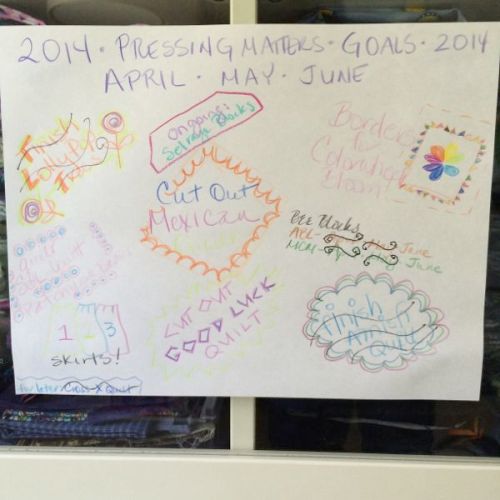 2014 · PRESSING MATTERS · GOALS · 2014
APRIL · MAY · JUNE
Finish
Lollypop
Trees
ongoing:
Selvage Blocks
Cut Out
Mexican
Borders
for
Colorwheel
Bloom
Bee Blocks
ABL-
June
MCM-
June
quilt
1-3
skirts!
CUT OUT
GOOD LUCK
QUILT
finish
Quilt
Cross X Quilt